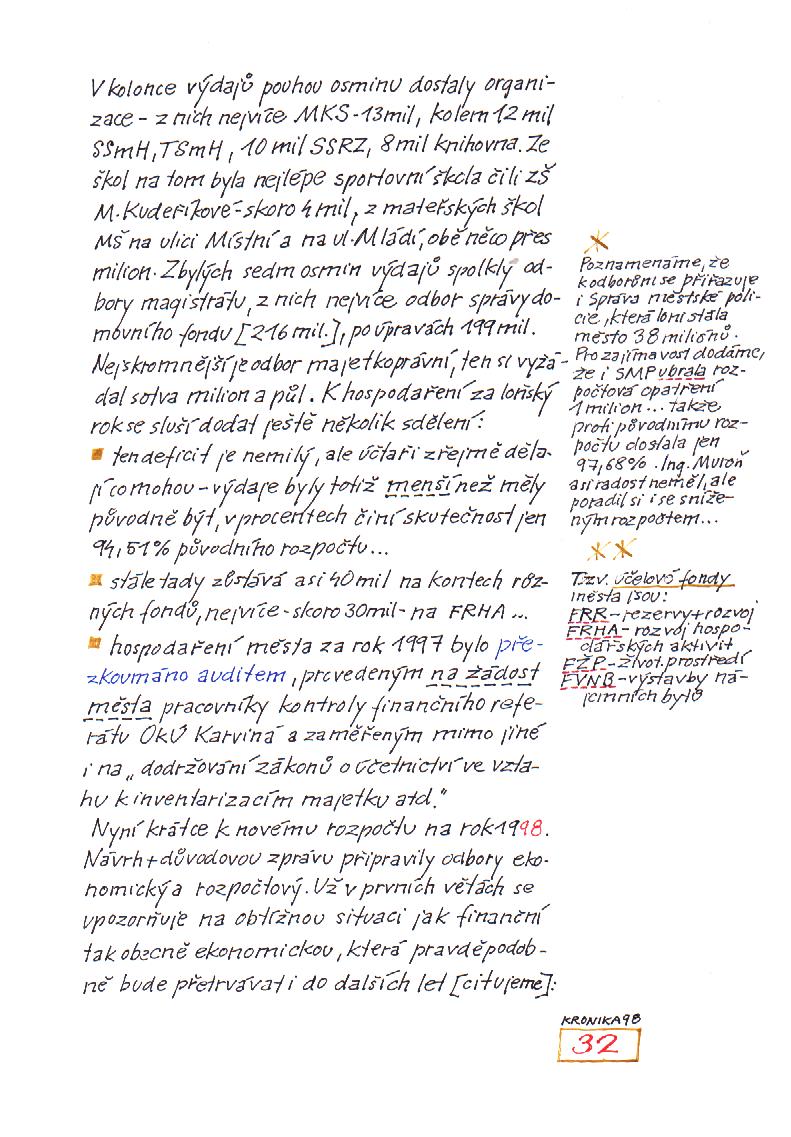 V kolonce výdajů pouhou osminu dostaly organi-
zace - z nich nejvíce MKS - 13 mil, kolem 12 mil
SSmH, TSmH, 10 mil SSRZ, 8 mil knihovna. Ze
škol na tom byla nejlépe sportovní škola čili ZŠ
M. Kudeříkové - skoro 4 mil, z mateřských škol
MŠ na ulici Místní a na ul. Mládí, obě něco přes
milion. Zbylých sedm osmin výdajů spolkly od-
bory magistrátu, z nich nejvíce odbor správy do-
movního fondu [216 mil.], po úpravách 199 mil.
Nejskromnější je odbor majetkoprávní, ten si vyžá-
dal sotva milion a půl. K hospodaření za loňský
rok se sluší dodat ještě několik sdělení:
ten deficit je nemilý, ale účtaři zřejmě děla-
jí co mohou - výdaje byly totiž menší než měly
původně být, v procentech činí skutečnost jen
94,51% původního rozpočtu...
stále tady zůstává asi 40 mil na kontech růz-
ných fondů, nejvíce - skoro 30 mil - na FRHA ...
hospodaření města za rok 1997 bylo pře-
zkoumáno auditem, provedeným na žádost
města pracovníky kontroly finančního refe-
rátu OkÚ Karviná a zaměřeným mimo jiné
i na „dodržování zákonů o účetnictví ve vzta-
hu k inventarizacím majetku atd."
Nyní krátce k novému rozpočtu na rok 1998.
Návrh + důvodovou zprávu připravily odbory eko-
nomický a rozpočtový. Už v prvních větách se
upozorňuje na obtížnou situaci jak finanční
tak obecně ekonomickou, která pravděpodob-
ně bude přetrvávat i do dalších let [citujeme]:
Poznamenáme, že
k odborům se přiřazuje
i Správa městské poli-
cie, která loni stála
město 38 milionů.
Pro zajímavost dodáme,
že i SMP ubrala roz-
počtová opatření
1 milion... takže
proti původnímu roz-
počtu dostala jen
97,68%. Ing. Muroň
asi radost neměl, ale
poradil si i se sníže-
ným rozpočtem...
Tzv. účelové fondy
města jsou:
FRR - rezervy + rozvoj
FRHA - rozvoj hospo-
dářských aktivit
FŽP - život. prostředí
FVNB - výstavby ná-
jemních bytů
KRONIKA 98
32